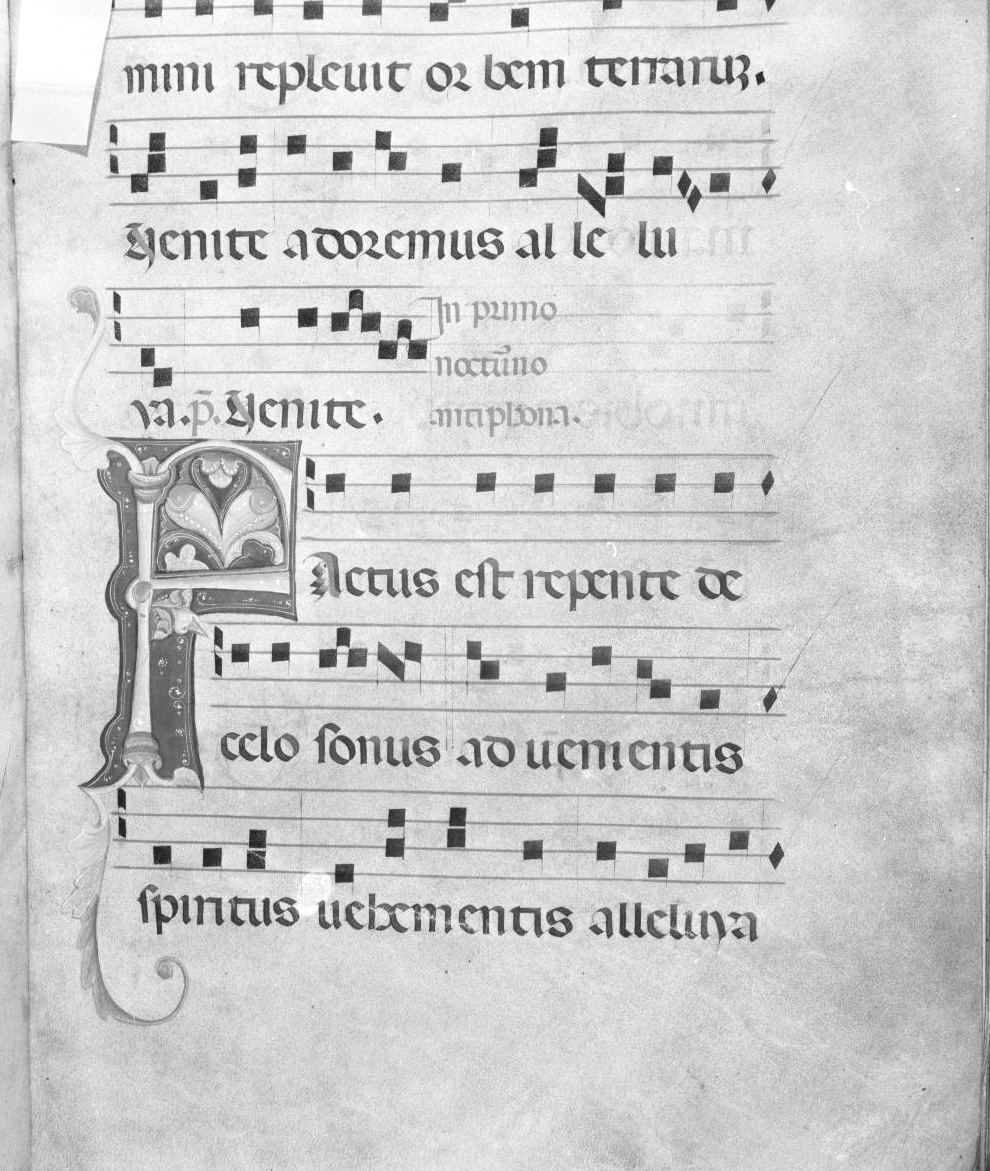 mini repleuit orbem terraruꝫ.
Venite adoremus al le lu
ya. p̄. Venite. In primo
noctũno
antiphona.
FActus est repente de
celo sonus aduenientis
spiritus uehementis alleluya